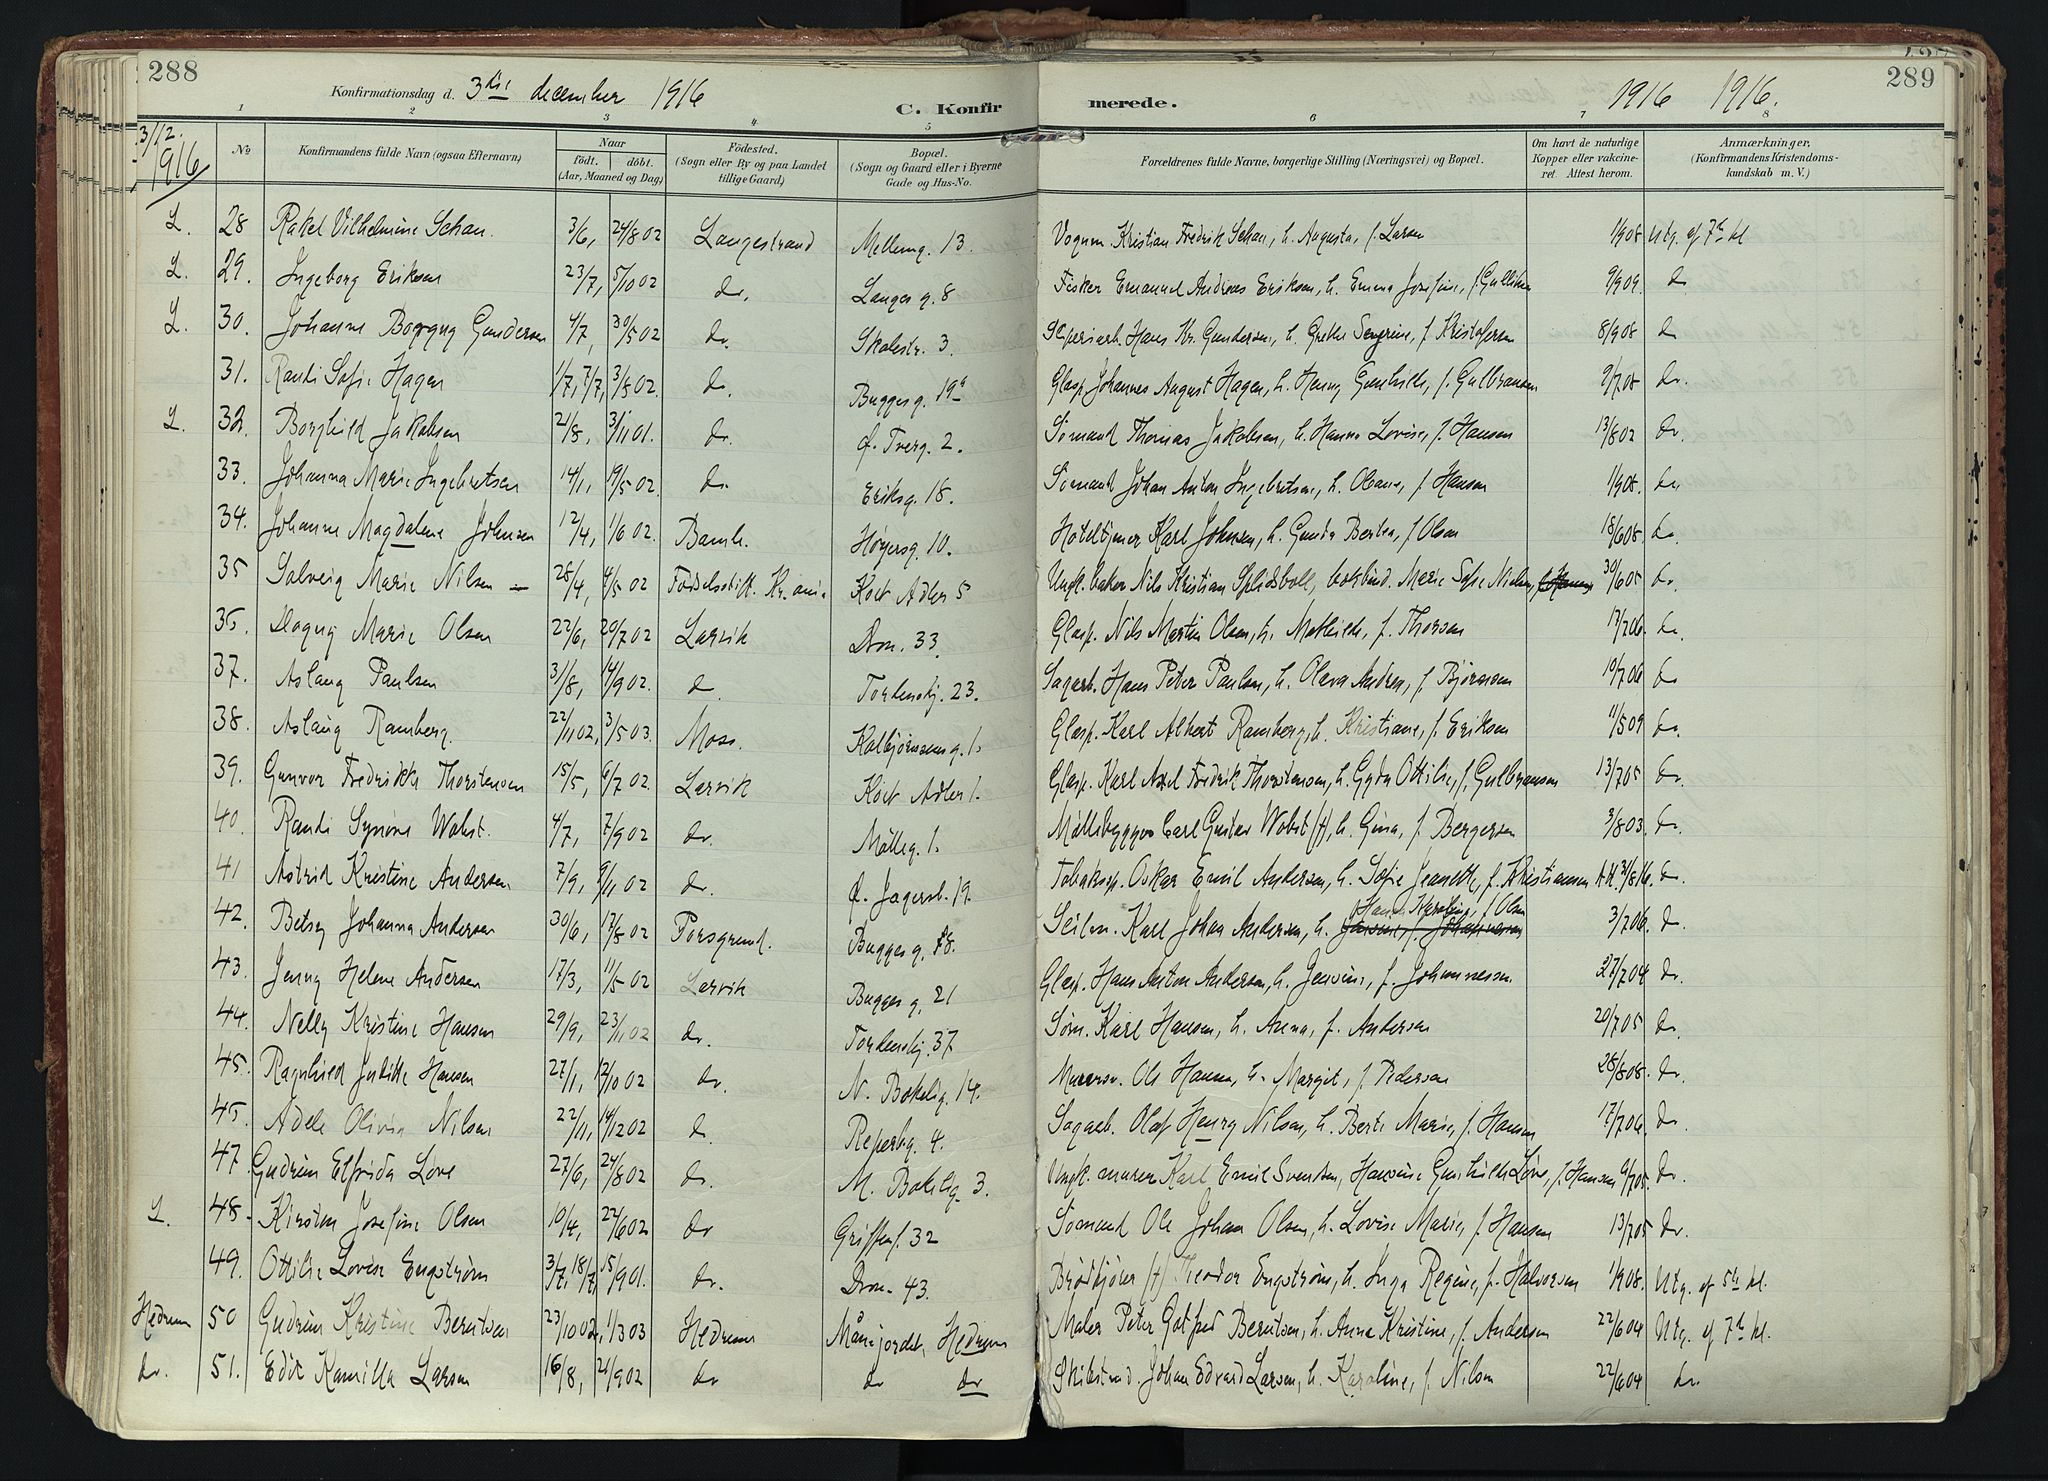 288
Konfirmationsdag d. 3die december 1916
C. Konfirmerede.
1916 1916.
289
1 2 3 4 5 6 7 8
3/12. 1916
No
Konfirmandens fulde Navn (ogsaa Efternavn)
Naar
födt. döbt.
(Aar, Maaned og Dag)
Födested.
(Sogn eller By og paa Landet
tillige Gaard)
Bopæl.
(Sogn og Gaard eller i Byerne
Gade og Hus-No.
Forældrenes fulde Navne, borgerlige Stilling (Næringsvei) og Bopæl.
Om havt de naturlige
Kopper eller vakcine-
ret Attest herom.
Anmærkninger,
(Konfirmandens Kristendoms-
kundskab m. V.)
L. 28 Rakel Vilhelmine Schau. 3/6, 24/8 02 Langestrand Mellemg. 13. Vognm. Kristian Fredrik Schau, h. Augusta, f. Larsen 1/908 Utg. af 7de kl
L. 29. Ingeborg Eriksen 23/7, 5/10 02 do. Langesg. 8 Fisker Emanuel Andreas Eriksen, h. Emma Josefine, f. Gulliksen 9/909. do
L. 30. Johanne Borgny Gundersen 4/7, 30/5 02 do. Skolestr. 3. Hans Kr. Gundersen, h. Grethe Severine, f. Kristofersen 8/908 do
31. Randi Sofie Hagen 1/7, 7/7, 3/8 02. do. Buggesg. 19a Glasp. Johannes August Hagen, h. Henny Gunhilde, f. Gulbransen 9/708 do.
L. 32. Borghild Jakobsen 21/8, 3/11 01. do. ø. Tverg. 2. Sømand Thomas Jakobsen, h. Hanna Lovise, f. Hansen 13/802 do.
33. Johanna Marie Ingebretsen 14/1, 19/5 02. do. Eriksg. 18. Sømand Johan Anton Ingebretsen, h. Olava, f. Hansen 1/908. do.
34. Johanne Magdalene Johnsen 12/4, 1/6 02. Bamb. Høyersg. 10. Hoteltjener Karl Johnsen, h. Gunda Bertea, f. Olsen 18/608. do.
35 Solveig Marie Nilsen — 28/4, 4/5 02 Fødselsstift. Kr.ania Kort Adler 5 Ungk. baker Nils Kristian Splidsboll, bokbind. Marie Sofie Nielsen, 30/605 do.
36. Dagny Marie Olsen 22/6, 20/7 02 Larvik Dron. 33. Glasp. Nils Martin Olsen, h. Mathilde, f. Thorsen 13/206. do.
37. Aslaug Paulsen 31/8, 14/9 02. do Tordenskj. 23. Sagarb. Hans Peter Paulsen, h. Olava Andrea, f. Bjørnsen 10/706 do
38. Aslaug Ramberg. 22/11 02, 3/5 03. Moss. Kolbjørnsensg. 1. Glasp. Karl Albert Ramberg, h. Kristiane, f. Eriksen 11/509 do.
39. Gunvor Fredrikke Thorstensen 15/5, 6/7 02. Larvik Kort Adler 1. Glasp. Karl Axel Fredrik Thorstensen, h. Gyda Ottilie, f. Gulbransen 13/705 do.
40. Randi Synøve Wobst. 4/7, 7/9 02 do. Mølleg. 1. Møllebygger Carl Gustav Wobst (†), h. Gina, f. Bergersen 3/803. do.
41 Astrid Kristine Andersen 7/9, 9/11 02 do. ø. Jagersb. 19. Tobaksp. Oskar Emil Andersen, h. Sofie Jeanette, f. Kristiansen 3/816. do.
42. Betsy Johanna Andersen 30/6, 17/8 02 Porsgrund. Buggesg. 78. Seilm. Karl Johan Andersen, h. Hanna Karoline, f. Olsen 3/706. do.
43. Jenny Helene Andersen 17/3, 11/5 02 Larvik Buggesg. 21 Glasp. Hans Anton Andersen, h. Jensine, f. Johannessen 27/704 do.
44. Nelly Kristine Hansen 29/9, 23/11 02 do. Tordenskj. 37 Søm. Karl Hansen, h. Anna, f. Andersen 20/705 do.
45. Ragnhild Juditte Hansen 27/1, 12/10 02 do. N. Bøkelig. 14. Murersv. Ole Hansen, h. Margit, f. Pedersen 28/808. do.
46. Adele Olivia Nilsen 22/11, 14/12 02 do. Reperbg. 4. Sagarb. Olaf Henry Nilsen, h. Berte Marie, f. Hansen 17/706. do.
47. Gudrun Elfrida Løve 27/6, 24/8 02 do. M. Bøkelig. 3. Ungk. murer Karl Emil Svendsen, Hansine Gunhilde Løve, f. Hansen 9/705. do.
L. 48. Kirsten Josefine Olsen 10/4, 22/6 02 do Griffenf. 32 Sømand Ole Johan Olsen, h. Lovise Marie, f. Hansen 13/705 do.
49. Ottilie Lovise Engstrøm 3/7, 18/7, 15/9 01. do. Dron. 43. Brødkjører (†) Theodor Engstrøm, h. Inga Regine, f. Halvorsen 1/908. Utg. af 5te kl.
Hedrum 50 Gudrun Kristine Berntsen 23/10 02, 1/3 03 Hedrum Månejordet, Hedrum Maler Peter Gotfred Berntsen, h. Anna Kristine, f. Andersen 22/604 Utg. af 7de kl.
do. 51. Edit Kamilla Larsen 16/8, 21/9 02 do do do Johan Edvard Larsen, h. Karoline, f. Nilsen 22/604 do.